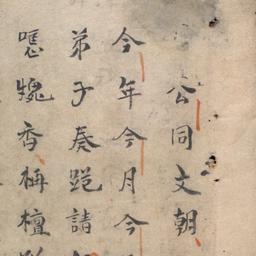 公同文朝
今年今月今
弟子奏跪請
香栴檀